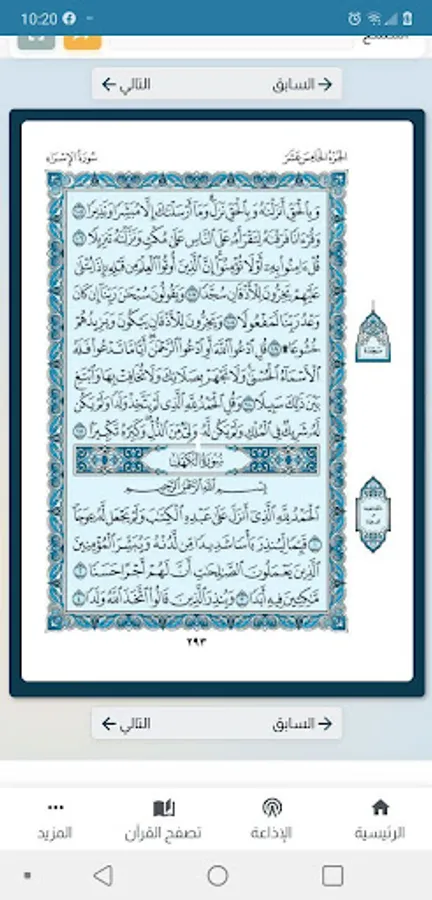 10:20
السابق
التالي
الجزء الخامس عشر
سورة الإسراء
وَبِالْحَقِّ أَنزَلْنَٰهُ وَبِالْحَقِّ نَزَلَ ۗ وَمَا أَرْسَلْنَٰكَ إِلَّا مُبَشِّرًا وَنَذِيرًا ١٠٥
وَقُرْءَانًا فَرَقْنَٰهُ لِتَقْرَأَهُ عَلَى النَّاسِ عَلَىٰ مُكْثٍ وَنَزَّلْنَٰهُ تَنزِيلًا ١٠٦
قُلْ ءَامِنُوا بِهِ أَوْ لَا تُؤْمِنُوا ۚ إِنَّ الَّذِينَ أُوتُوا الْعِلْمَ مِن قَبْلِهِ إِذَا يُتْلَىٰ
عَلَيْهِمْ يَخِرُّونَ لِلْأَذْقَانِ سُجَّدًا ١٠٧ وَيَقُولُونَ سُبْحَٰنَ رَبِّنَا إِن كَانَ
وَعْدُ رَبِّنَا لَمَفْعُولًا ١٠٨ وَيَخِرُّونَ لِلْأَذْقَانِ يَبْكُونَ وَيَزِيدُهُمْ
خُشُوعًا ۩ ١٠٩ قُلِ ادْعُوا اللَّهَ أَوِ ادْعُوا الرَّحْمَٰنَ ۖ أَيًّا مَّا تَدْعُوا فَلَهُ
الْأَسْمَاءُ الْحُسْنَىٰ ۚ وَلَا تَجْهَرْ بِصَلَاتِكَ وَلَا تُخَافِتْ بِهَا وَابْتَغِ
بَيْنَ ذَٰلِكَ سَبِيلًا ١١٠ وَقُلِ الْحَمْدُ لِلَّهِ الَّذِي لَمْ يَتَّخِذْ وَلَدًا وَلَمْ يَكُن
لَّهُ شَرِيكٌ فِي الْمُلْكِ وَلَمْ يَكُن لَّهُ وَلِيٌّ مِّنَ الذُّلِّ ۖ وَكَبِّرْهُ تَكْبِيرًا ١١١
سورة الكهف
بِسْمِ اللَّهِ الرَّحْمَٰنِ الرَّحِيمِ
الْحَمْدُ لِلَّهِ الَّذِي أَنزَلَ عَلَىٰ عَبْدِهِ الْكِتَٰبَ وَلَمْ يَجْعَل لَّهُ عِوَجًا
١ قَيِّمًا لِّيُنذِرَ بَأْسًا شَدِيدًا مِّن لَّدُنْهُ وَيُبَشِّرَ الْمُؤْمِنِينَ
الَّذِينَ يَعْمَلُونَ الصَّٰلِحَٰتِ أَنَّ لَهُمْ أَجْرًا حَسَنًا ٢
مَّٰكِثِينَ فِيهِ أَبَدًا ٣ وَيُنذِرَ الَّذِينَ قَالُوا اتَّخَذَ اللَّهُ وَلَدًا ٤
٢٩٣
السابق
التالي
الرئيسية
الإذاعة
تصفح القرآن
المزيد